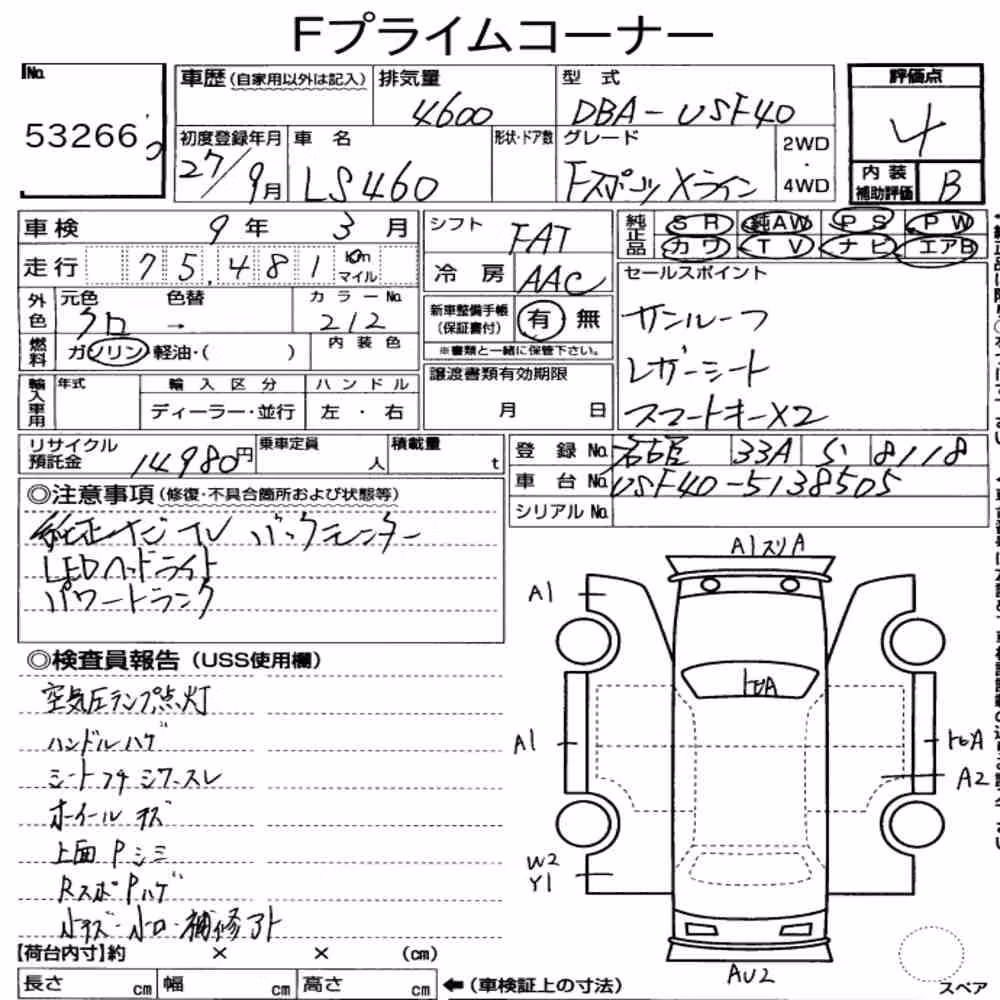 Fプライムコーナー
No.
53266
車歴 (自家用以外は記入)
排気量
4600
型式
DBA-USF40
評価点
4
初度登録年月
27/9月
車名
LS460
形状・ドア数
グレード
Fスポーツ Xライン
2WD
・
4WD
内装
補助評価
B
車検 9年 3月
走行 75,481 km
マイル
外色
元色
クロ
色替
→
カラーNo.
212
燃料
ガソリン・軽油・( )
内装色
輸入車用
年式
輸入区分
ディーラー・並行
ハンドル
左・右
シフト
FAT
冷房
AAC
新車整備手帳
(保証書付)
有 無
※書類と一緒に保管下さい。
譲渡書類有効期限
月 日
純正品
SR 純AW PS PW
カワ TV ナビ エアB
セールスポイント
サンルーフ
レザーシート
スマートキーX2
リサイクル
預託金
14980円
乗車定員
人
積載量
t
登録No. 名古屋 33A 8118
車台No. USF40-5138505
シリアルNo.
◎注意事項(修復・不具合箇所および状態等)
純正ナビTV バックモニター
LEDヘッドライト
パワートランク
◎検査員報告(USS使用欄)
空気圧ランプ点灯
ハンドルハゲ
シートフチ シワ.スレ
ホイール キズ
上面 P シミ
Rスポ Pハゲ
小キズ・小凹・補修アト
A1スリA
A1
トビA
A1
トビA
A2
W2
Y1
AU2
スペア
【荷台内寸】約 × × (cm)
長さ cm 幅 cm 高さ cm ←(車検証上の寸法)